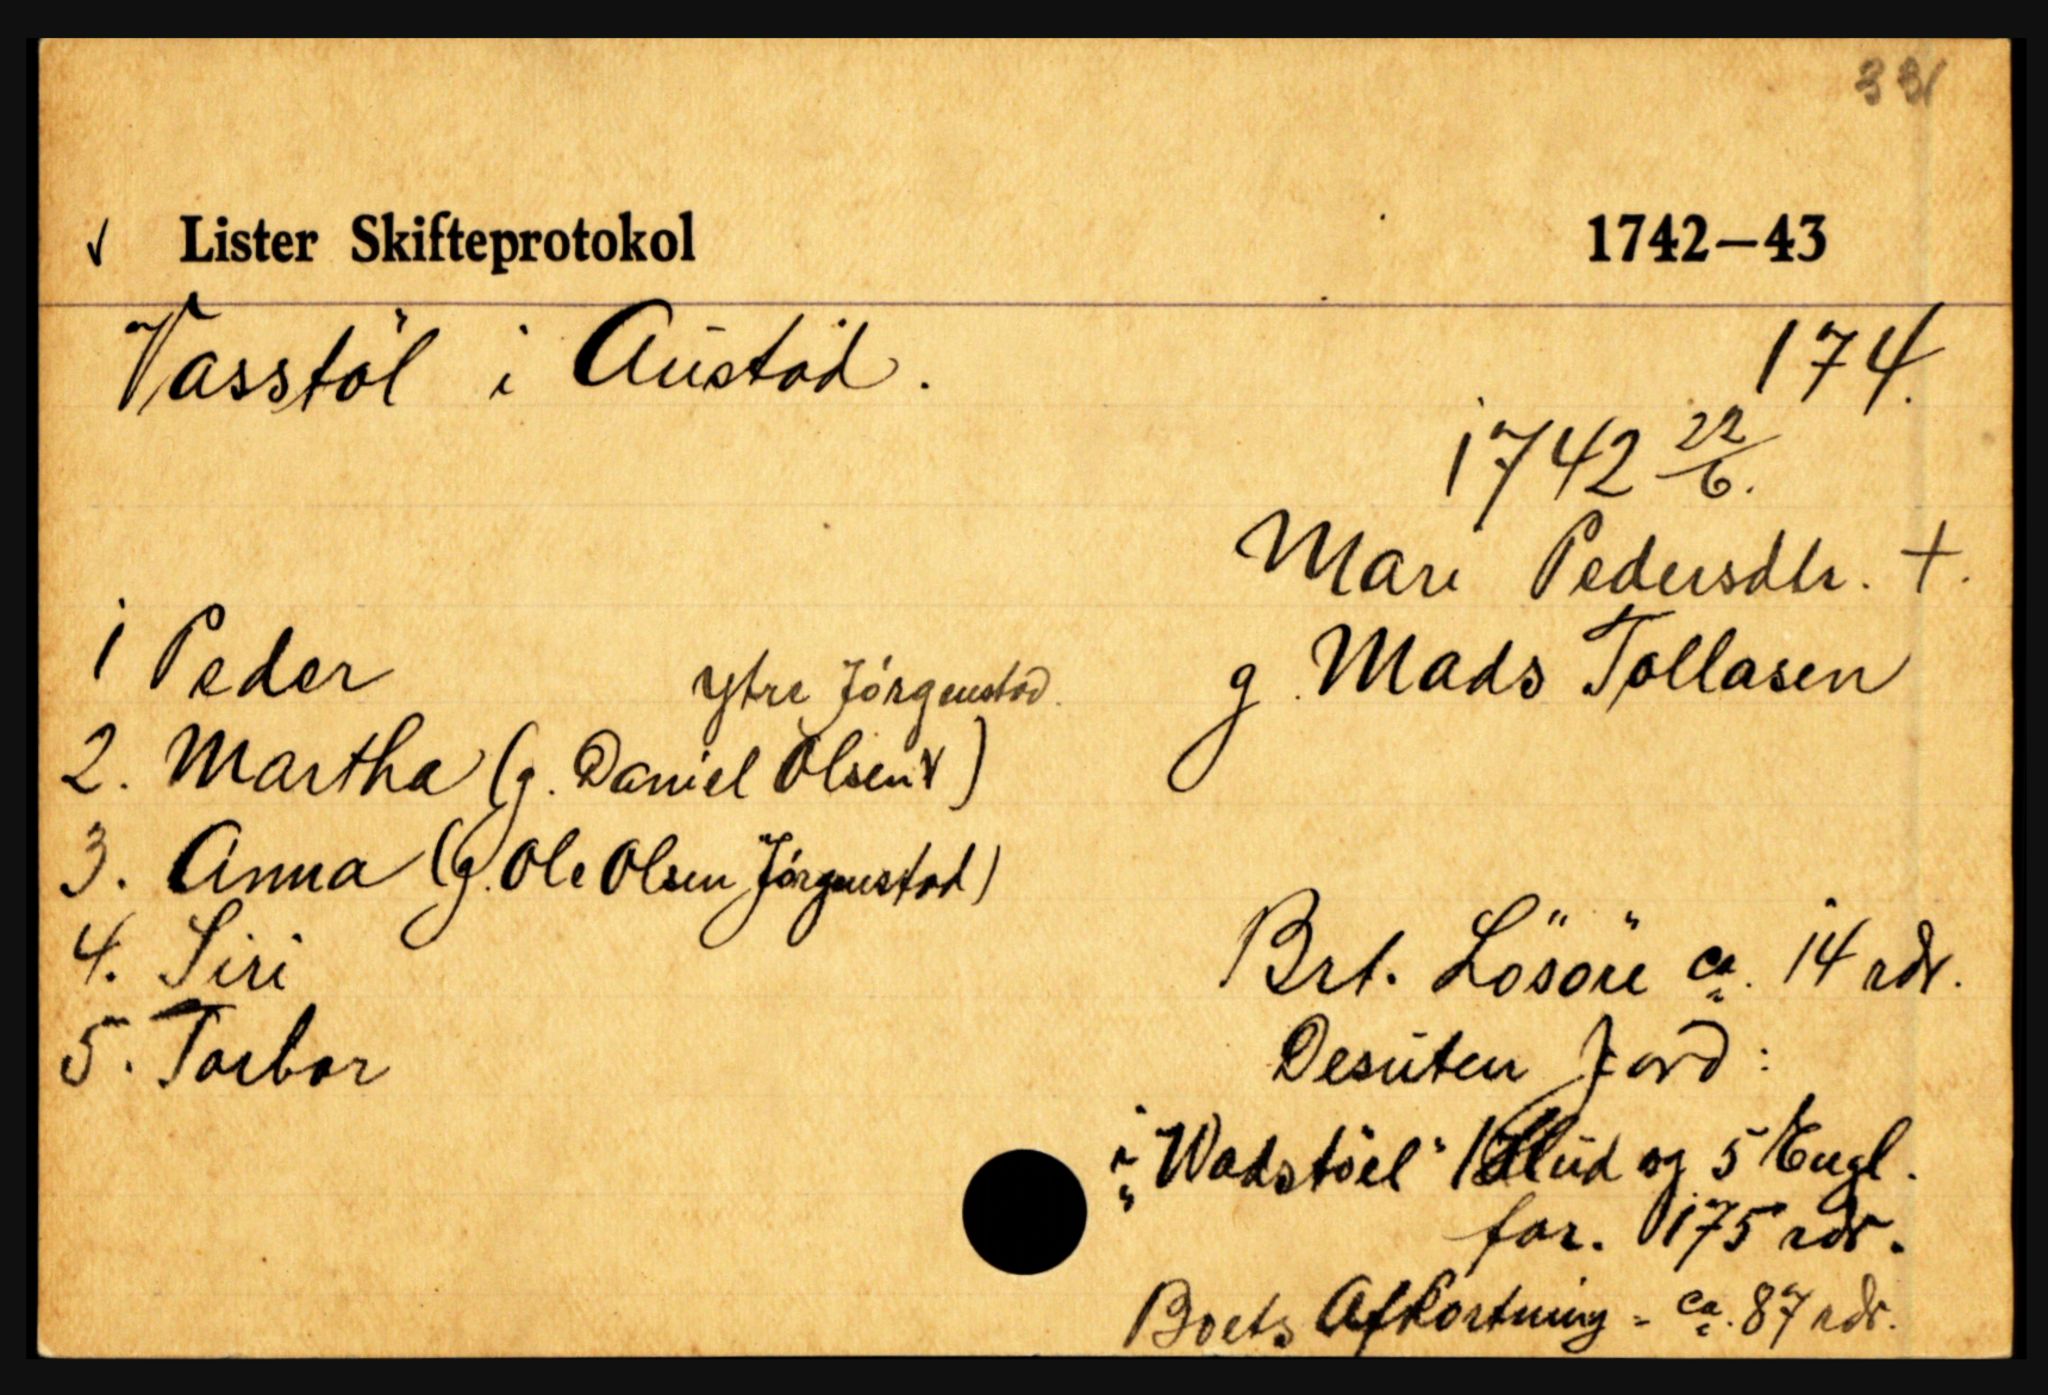 331
√ Lister Skifteprotokol 1742–43
Vasstöl i Austad. 174.
1742 22/6.
Mari Pedersdtr. +.
1 Peder
g. Mads Tollasen
Ytre Jórgenstad.
2. Martha (g. Daniel Olsen √)
3. Anna (g. Ole Olsen Jórgenstad)
4. Siri
5. Torbor
Brt. Lösöre ca. 14 rdr.
Desuten Jord:
i "Wadstöel" 1 Hud og 5 Engl.
for. 175 rdr.
Boets Afkortning = ca. 87 rdr.